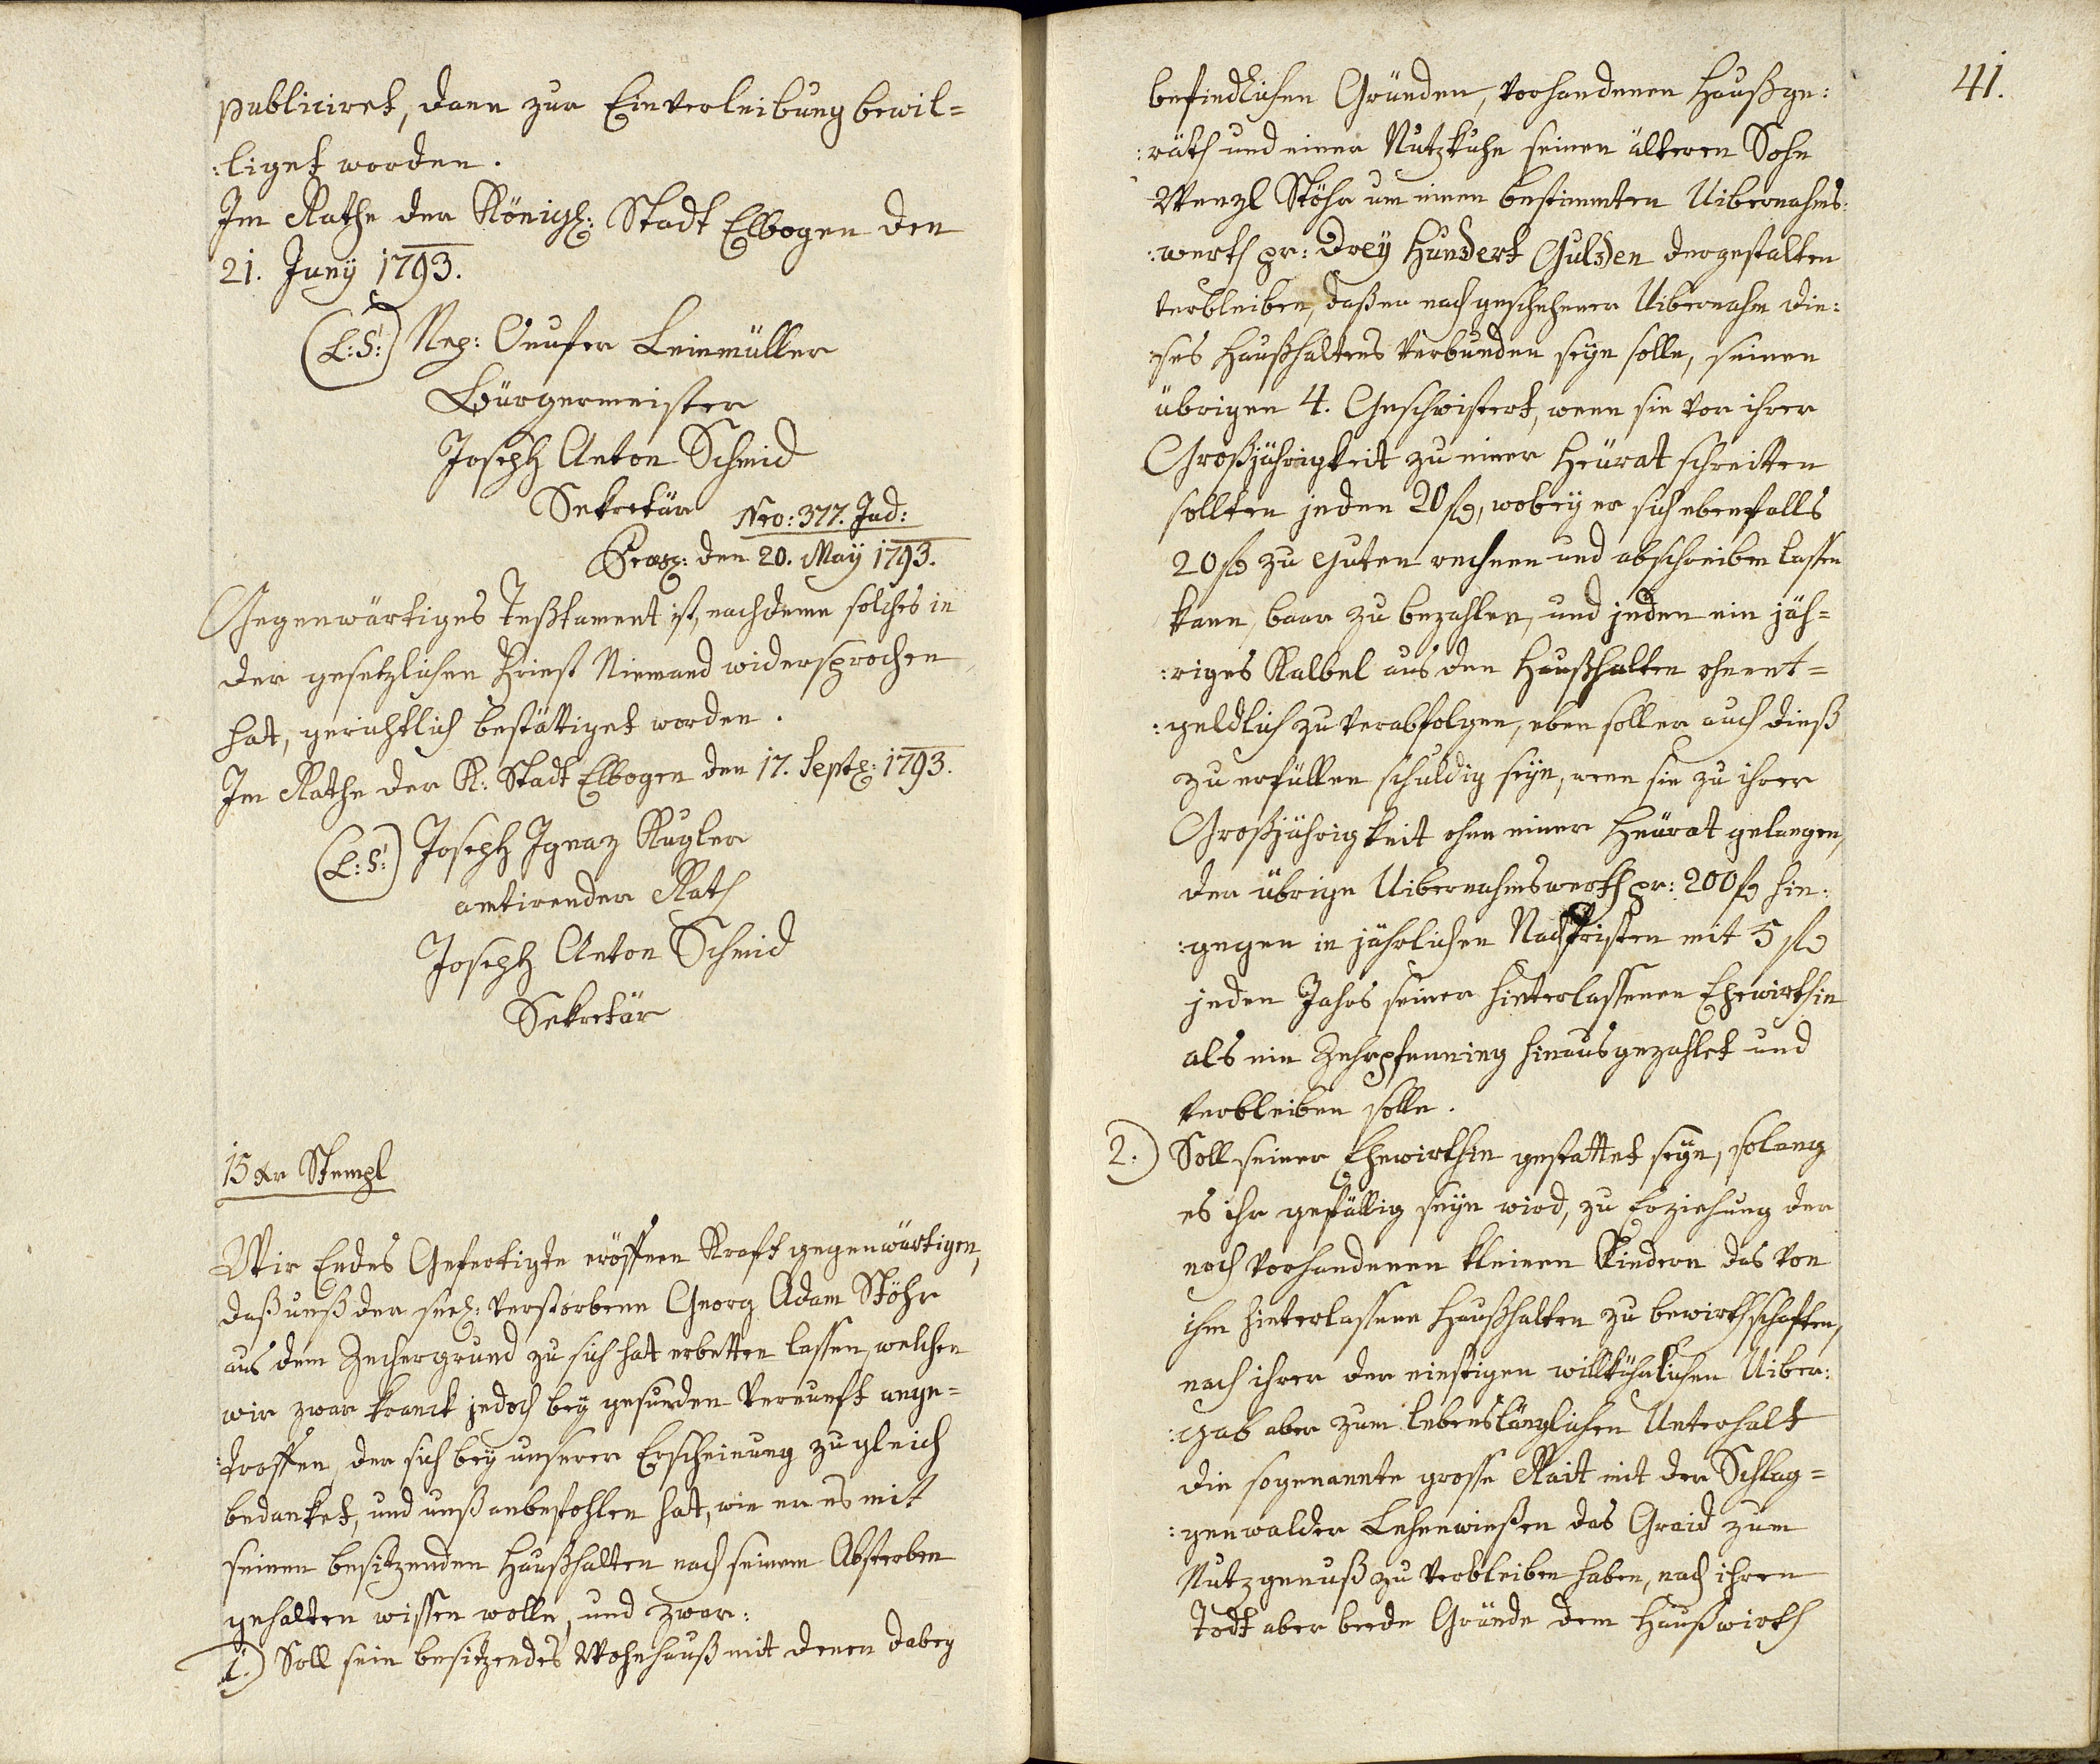 publiciret, dann zur Einverleibung bewil=
:liget worden.
Im Rathe der Königl: Stadt Elbogen den
21. Juny 1793.
(L:S:) Nep: Onufer Leinmüller
Bürgermeister
Joseph Anton Schmid
Sekretär
Nro: 377. Jud:
Praes: den 20. May 1793.
Gegenwärtiges Teßtament ist, nachdeme solches in
der gesetzlichen Friest Niemand widersprochen
hat, gerichtlich bestättiget worden.
Im Rathe der K: Stadt Elbogen den 17. Septb: 1793.
(L:S:) Joseph Ignaz Kugler
amtirender Rath
Joseph Anton Schmid
Sekretär
15 xr Stempl
Wir Endes Gefertigte eröffnen Kraft gegenwärtigen,
daß unß der seel: verstorbene Georg Adam Stöhr
aus dem Zechergrund zu sich hat erbetten lassen, welchen
wir zwar kranck jedoch bey gesunden Vernunft ange=
:troffen, der sich bey unserer Erscheinung zugleich
bedanket, und unß anbefohlen hat, wie er es mit
seinen besitzenden Haußhalten nach seinem Absterben
gehalten wissen wolle, und zwar:
1.) Soll sein besitzendes Wohnhauß mit denen dabey
41.
befindlichen Gründen, vorhandenen Haußge:
:räth und einer Nutzkuhe seinen älteren Sohn
Wenzl Stöhr um einen bestimmten Uibernahms:
:werth pr: Drey Hundert Gulden dergestalten
verbleiben, daß er nach geschehener Uibernahm die:
:ses Haußhaltens verbunden seyn solle, seinen
übrigen 4. Geschwistert, wenn sie vor ihrer
Großjährigkeit zu einer Heürat schreitten
sollten jeden 20 fl, wobey er sich ebenfalls
20 fl zu Guten rechnen und abschreiben lassen
kann, baar zu bezahlen, und jeden ein jäh=
:riges Kalbel aus den Haußhalten ohnent=
:geldlich zu verabfolgen, eben soll er auch dieß
zu erfüllen schuldig seyn, wenn sie zu ihrer
Großjährigkeit ohne einer Heürat gelangen,
der übrige Uibernahmswerth pr: 200 fl hin:
:gegen in jährlichen Nachfristen mit 5 fl
jeden Jahrs seiner hinterlassenen Ehewirthin
als ein Zehrpfenning hinausgezahlet und
verbleiben solle.
2.) Soll seiner Ehewirthin gestattet seyn, solang
es ihr gefällig seyn wird, zu Erziehung der
noch vorhandenen kleinen Kindern das von
ihm hinterlassene Haußhalten zu bewirthschaften,
nach ihrer der einstigen willkührlichen Uiber:
:gab aber zum lebenslänglichen Unterhalt
die sogenannte grosse Rait mit der Schlag=
:genwalder Lehenwießen das Graid zum
Nutzgenuß zu verbleiben haben, nach ihren
Todt aber beede Gründe dem Haußwirth